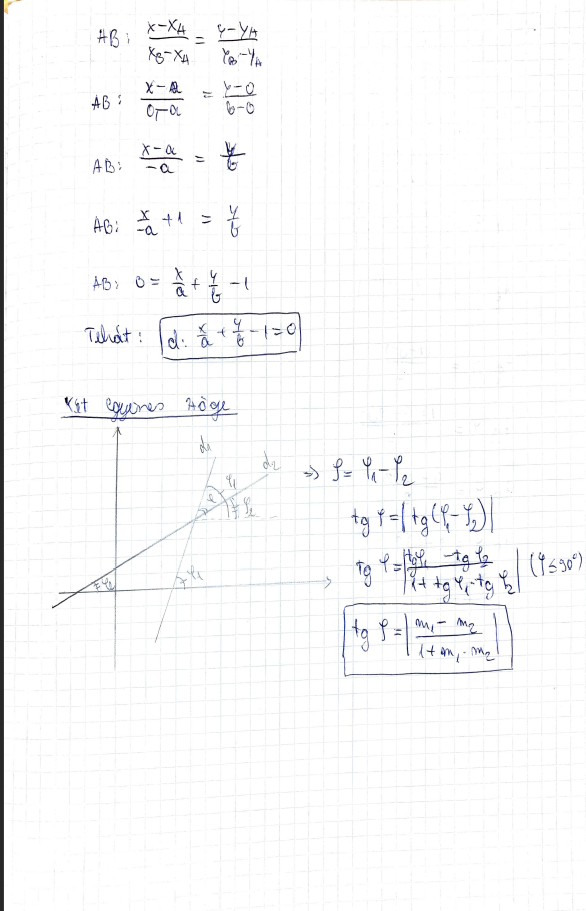 AB: (x-x_A)/(x_B-x_A) = (y-y_A)/(y_B-y_A)
AB: (x-a)/(0-a) = (y-0)/(b-0)
AB: (x-a)/(-a) = y/b
AB: x/(-a) + 1 = y/b
AB: 0 = x/a + y/b - 1
Tehát: d: x/a + y/b - 1 = 0
Két egyenes szöge
d₁
d₂
φ φ₁
φ₂
φ₂ φ₁
⇒ φ = φ₁ - φ₂
tg φ = |tg(φ₁ - φ₂)|
tg φ = |(tg φ₁ - tg φ₂)/(1 + tg φ₁ · tg φ₂)| (φ ≤ 90°)
tg φ = |(m₁ - m₂)/(1 + m₁ · m₂)|